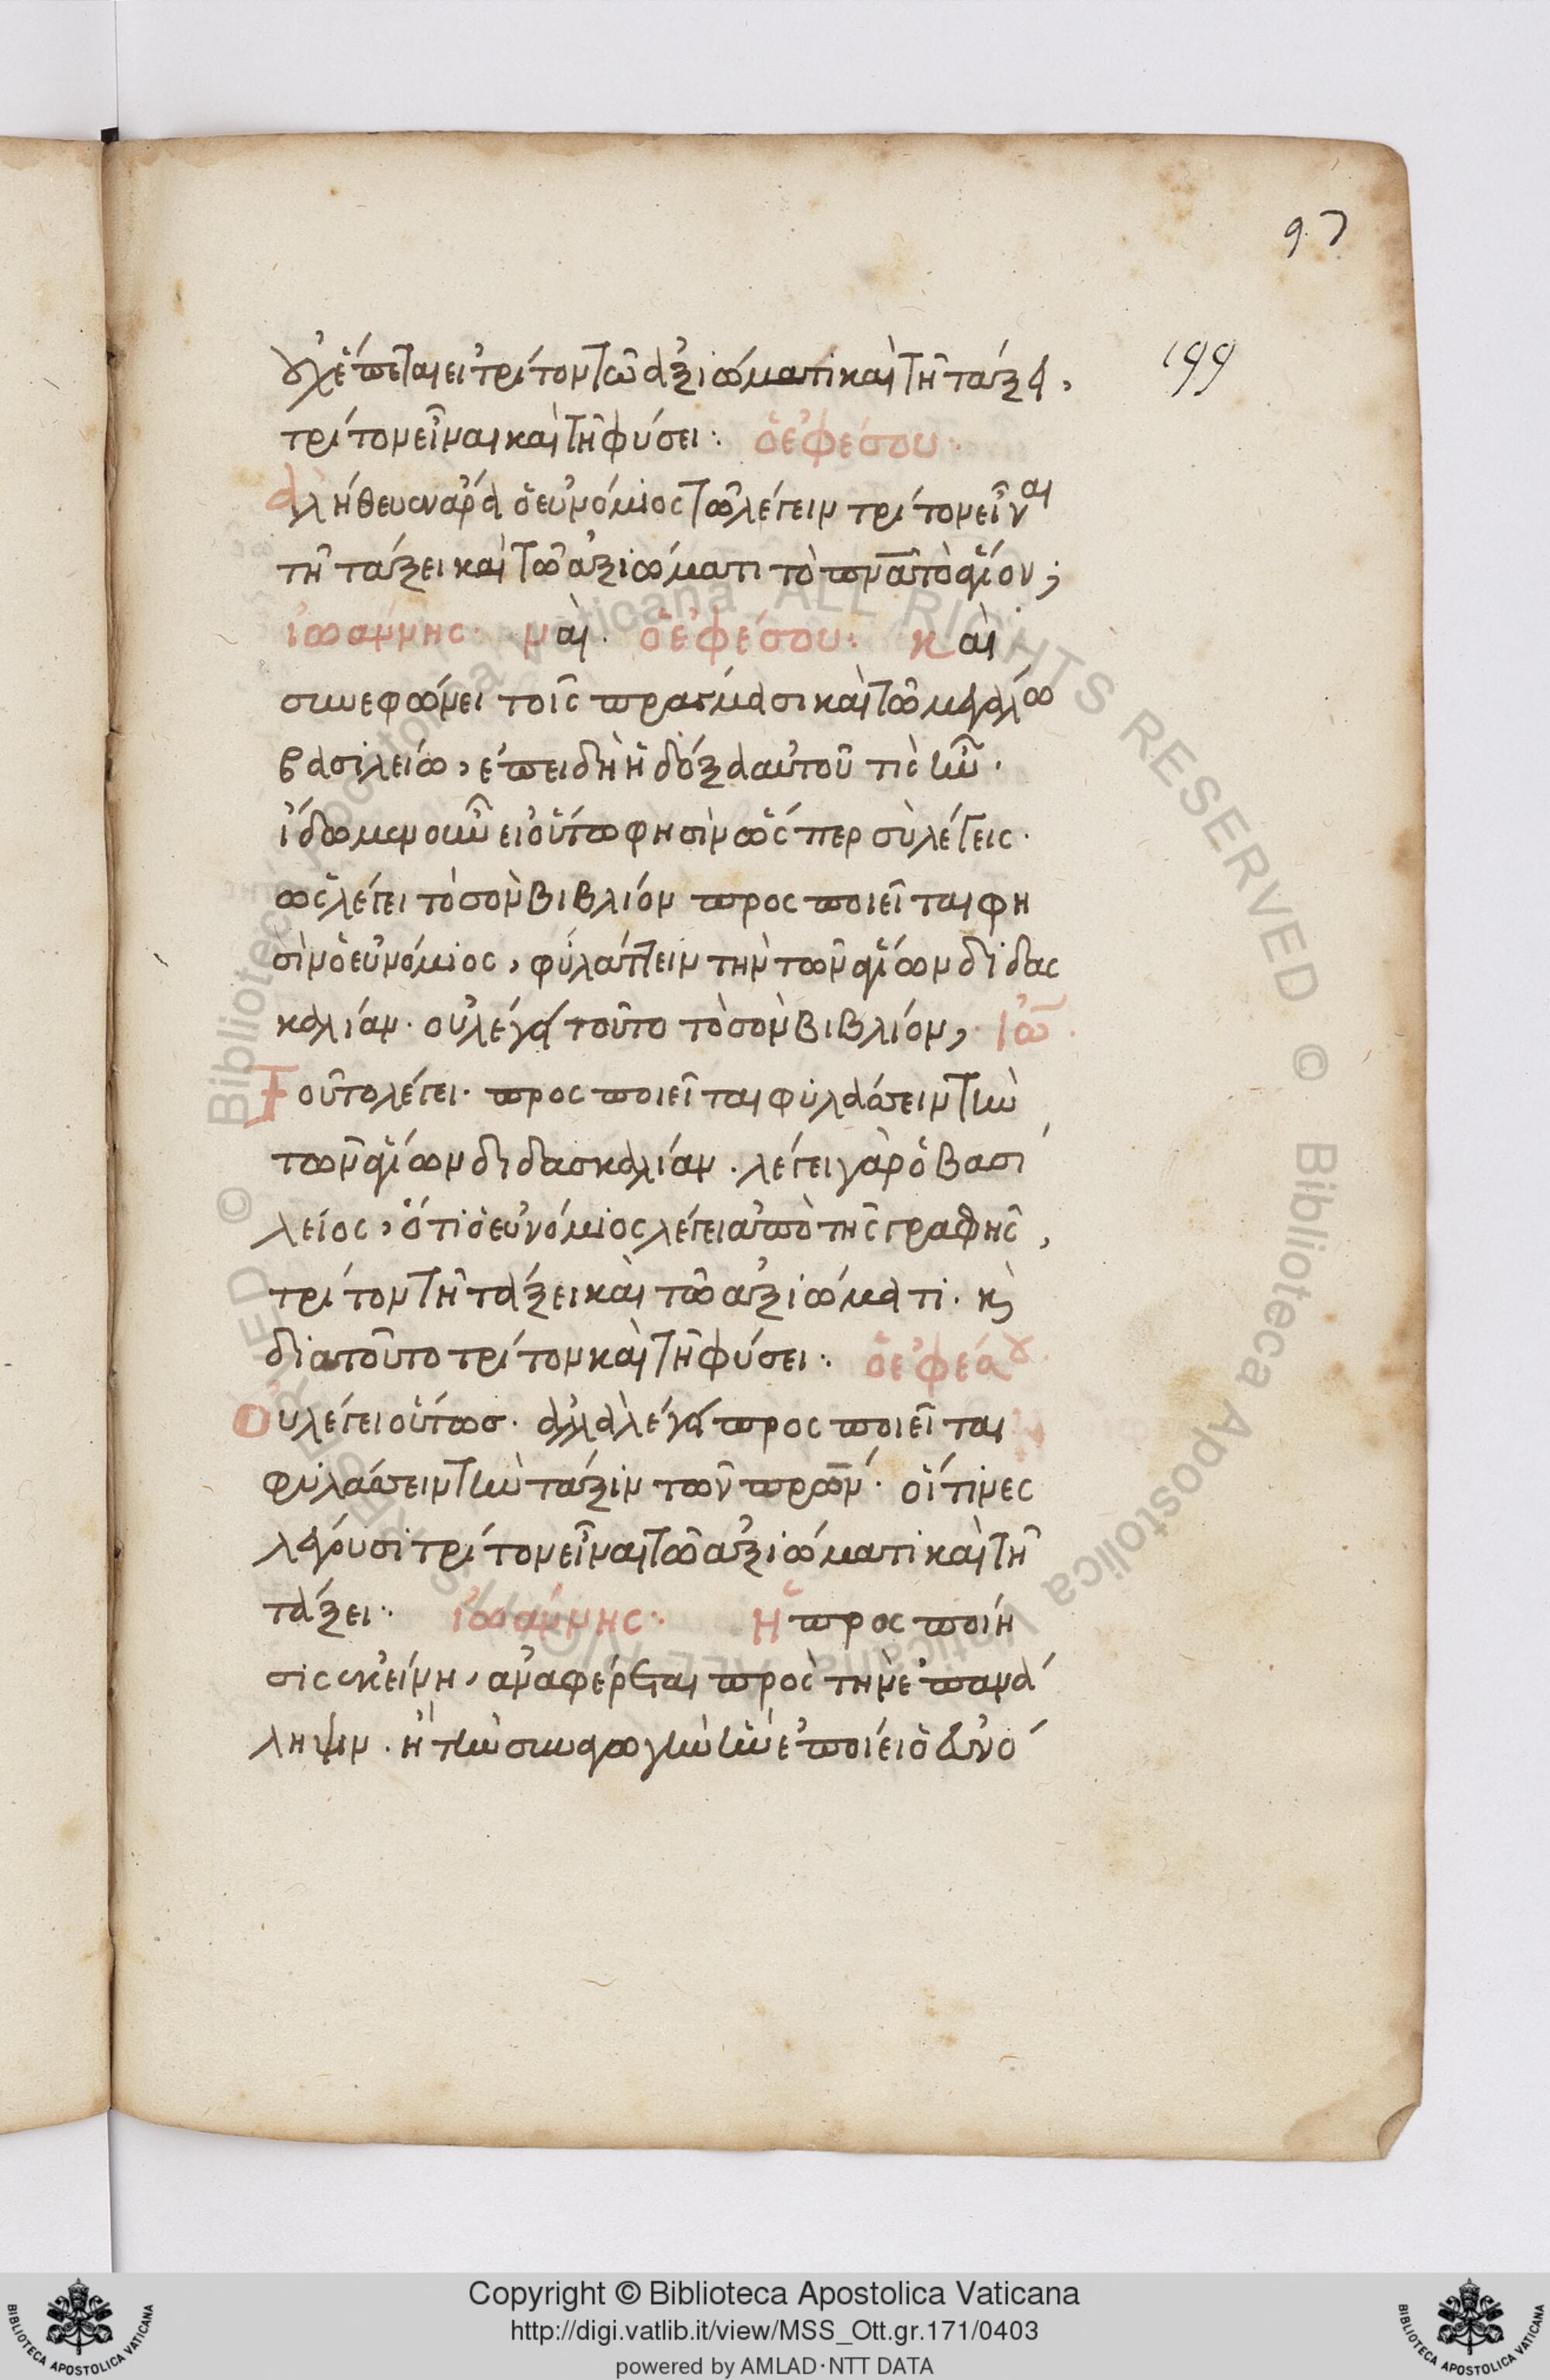 97
199
οὐχ ἕπεται εἰ τρίτον τῶ ἀξιώματι καὶ τῆ τάξει,
τρίτον εἶναι καὶ τῆ φύσει: ὁ ἐφέσου.
ἀλήθευεν ἄρα ὁ εὐνόμιος τῶ λέγειν τρίτον εἶναι
τῆ τάξει καὶ τῶ ἀξιώματι τὸ πνᾶ τὸ ἅγιον;
ἰωάννης. ναί. ὁ ἐφέσου: καὶ
συνεφώνει τοῖς πράγμασι καὶ τῶ μεγάλω
βασιλείω, ἐπειδὴ ἡ δόξα αὐτοῦ τίς ἦν.
ἴδωμεν οὖν εἰ οὕτω φησὶν ὥσπερ σὺ λέγεις.
ὡς λέγει τὸ σὸν βιβλίον προσποιεῖται φη
σὶν ὁ εὐνόμιος, φυλάττειν τὴν τῶν ἁγίων διδασ
καλίαν. οὐ λέγει τοῦτο τὸ σὸν βιβλίον, ἰω
Τοῦτο λέγει. προσποιεῖται φυλάττειν τὴν
τῶν ἁγίων διδασκαλίαν. λέγει γὰρ ὁ βασί
λειος, ὅτι ὁ εὐνόμιος λέγει ἀπὸ τῆς γραφῆς,
τρίτον τῆ τάξει καὶ τῶ ἀξιώματι. κὶ
διατοῦτο τρίτον καὶ τῆ φύσει: ὁ ἐφέσου.
Οὐ λέγει οὕτωσ. ἀλλὰ λέγει προσποιεῖται
φυλάττειν τὴν τάξιν τῶν πρῶν. οἵτινες
λέγουσι τρίτον εἶναι τῶ ἀξιώματι καὶ τῆ
τάξει: ἰωάννης: Ἡ προσποίη
σις ἐκείνη, ἀναφέρεται πρὸς τὴν ἐπανά
ληψιν. ἢ τὴν συναγωγὴν ἣν ἐποίει ὁ εὐνό
Copyright © Biblioteca Apostolica Vaticana
http://digi.vatlib.it/view/MSS_Ott.gr.171/0403
powered by AMLAD·NTT DATA